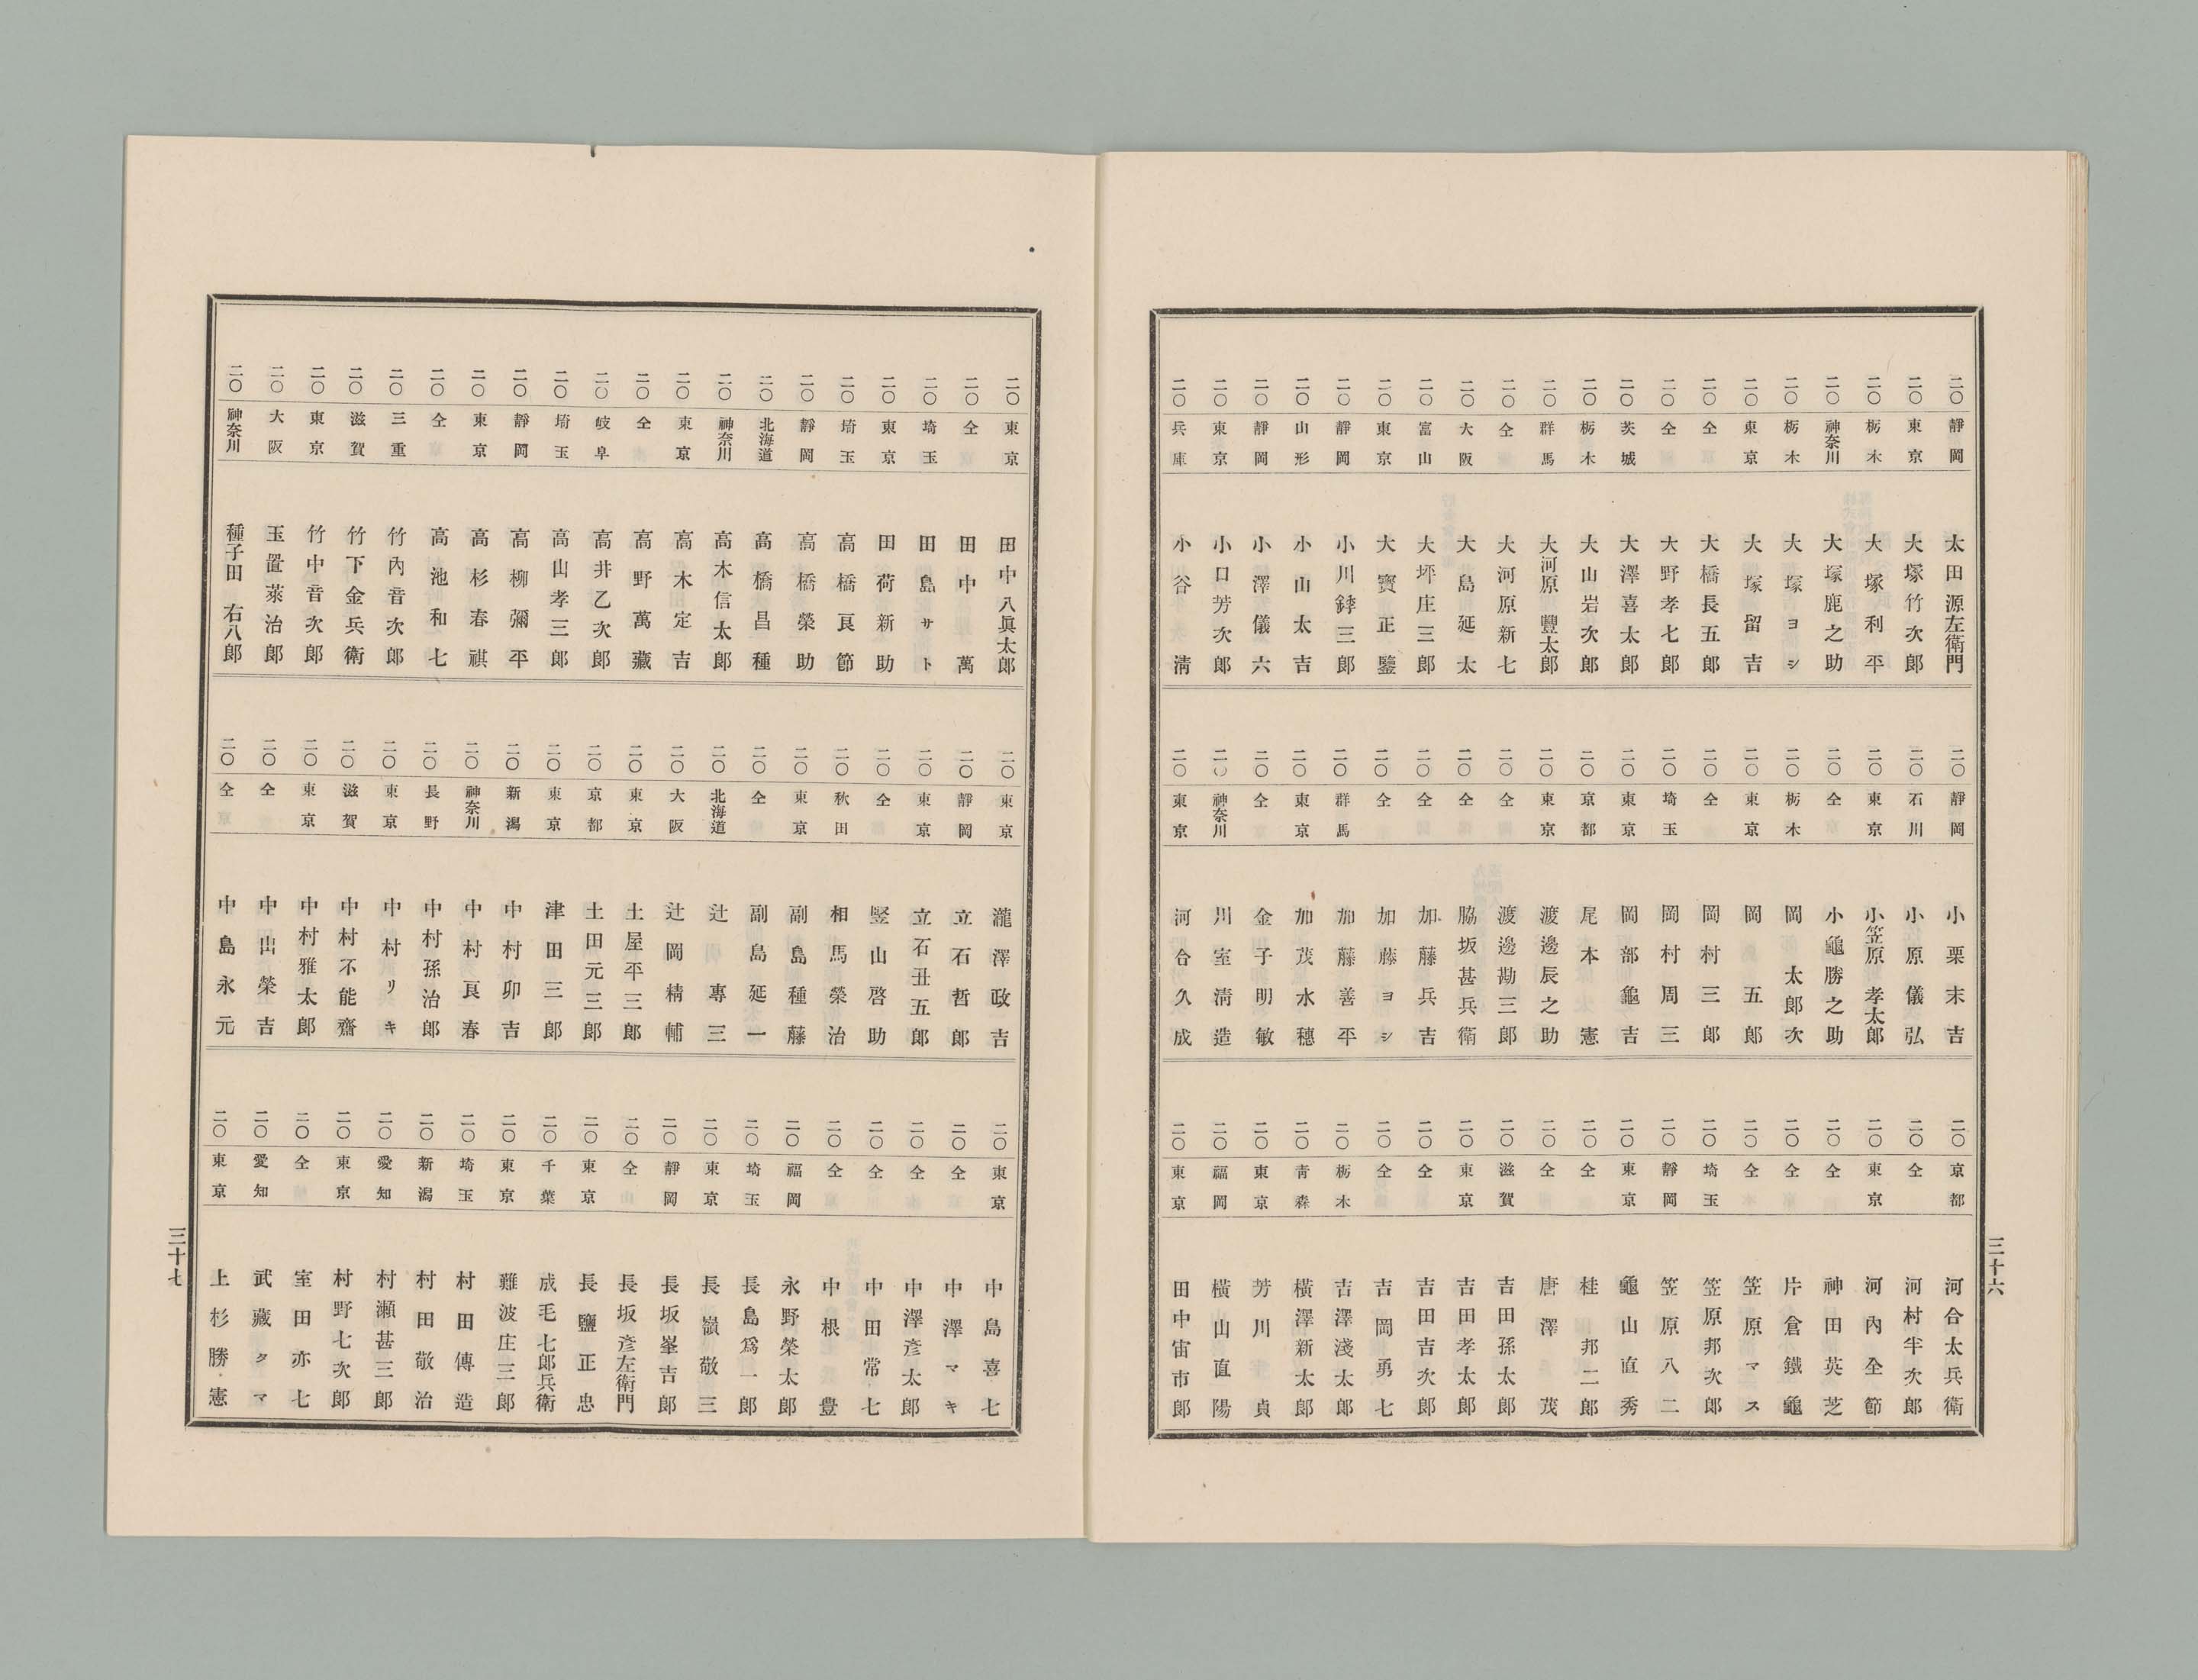 二〇 靜岡 太田源左衛門
二〇 東京 大塚竹次郎
二〇 栃木 大塚利平
二〇 神奈川 大塚鹿之助
二〇 栃木 大塚ヨシ
二〇 東京 大塚留吉
二〇 仝 大橋長五郎
二〇 仝 大野孝七郎
二〇 茨城 大澤喜太郎
二〇 栃木 大山岩次郎
二〇 群馬 大河原豐太郎
二〇 仝 大河原新七
二〇 大阪 大島延太
二〇 富山 大坪庄三郎
二〇 東京 大寳正鑒
二〇 靜岡 小川銈三郎
二〇 山形 小山太吉
二〇 靜岡 小澤儀六
二〇 東京 小口芳次郎
二〇 兵庫 小谷淸
二〇 靜岡 小栗末吉
二〇 石川 小原儀弘
二〇 東京 小笠原孝太郎
二〇 仝 小龜勝之助
二〇 栃木 岡太郎次
二〇 東京 岡五郎
二〇 仝 岡村三郎
二〇 埼玉 岡村周三
二〇 東京 岡部龜吉
二〇 京都 尾本憲
二〇 東京 渡邊辰之助
二〇 仝 渡邊勘三郎
二〇 仝 脇坂甚兵衛
二〇 仝 加藤兵吉
二〇 仝 加藤ヨシ
二〇 群馬 加藤善平
二〇 東京 加茂水穗
二〇 仝 金子明敏
二〇 神奈川 川室淸造
二〇 東京 河合久成
二〇 京都 河合太兵衛
二〇 仝 河村半次郎
二〇 東京 河內全節
二〇 仝 神田英芝
二〇 仝 片倉鐵龜
二〇 仝 笠原マス
二〇 埼玉 笠原邦次郎
二〇 靜岡 笠原八二
二〇 東京 龜山直秀
二〇 仝 桂邦二郎
二〇 仝 唐澤茂
二〇 滋賀 吉田孫太郎
二〇 東京 吉田孝太郎
二〇 仝 吉田吉次郎
二〇 仝 吉岡勇七
二〇 栃木 吉澤淺太郎
二〇 靑森 橫澤新太郎
二〇 東京 芳川貞
二〇 福岡 橫山直陽
二〇 東京 田中宙市郎
三十六
二〇 東京 田中八眞太郎
二〇 仝 田中萬
二〇 埼玉 田島サト
二〇 東京 田荷新助
二〇 埼玉 高橋良節
二〇 靜岡 高橋榮助
二〇 北海道 高橋昌種
二〇 神奈川 高木信太郎
二〇 東京 高木定吉
二〇 仝 高野萬藏
二〇 岐阜 高井乙次郎
二〇 埼玉 高山孝三郎
二〇 靜岡 高柳彌平
二〇 東京 高杉春祺
二〇 仝 高池和七
二〇 三重 竹內音次郎
二〇 滋賀 竹下金兵衛
二〇 東京 竹中音次郎
二〇 大阪 玉置萊治郎
二〇 神奈川 種子田右八郎
二〇 東京 瀧澤政吉
二〇 靜岡 立石哲郎
二〇 東京 立石丑五郎
二〇 仝 竪山啓助
二〇 秋田 相馬榮治
二〇 東京 副島種藤
二〇 仝 副島延一
二〇 北海道 辻專三
二〇 大阪 辻岡精輔
二〇 東京 土屋平三郎
二〇 京都 土田元三郎
二〇 東京 津田三郎
二〇 新潟 中村卯吉
二〇 神奈川 中村良春
二〇 長野 中村孫治郎
二〇 東京 中村リキ
二〇 滋賀 中村不能齋
二〇 東京 中村雅太郎
二〇 仝 中出榮吉
二〇 仝 中島永元
二〇 東京 中島喜七
二〇 仝 中澤マキ
二〇 仝 中澤彥太郎
二〇 仝 中田常七
二〇 仝 中根豊
二〇 福岡 永野榮太郎
二〇 埼玉 長島爲一郎
二〇 東京 長嶺敬三
二〇 靜岡 長坂峯吉郎
二〇 仝 長坂彥左衛門
二〇 東京 長鹽正忠
二〇 千葉 成毛七郎兵衛
二〇 東京 難波庄三郎
二〇 埼玉 村田傳造
二〇 新潟 村田敬治
二〇 愛知 村瀨甚三郎
二〇 東京 村野七次郎
二〇 仝 室田亦七
二〇 愛知 武藏クマ
二〇 東京 上杉勝憲
三十七